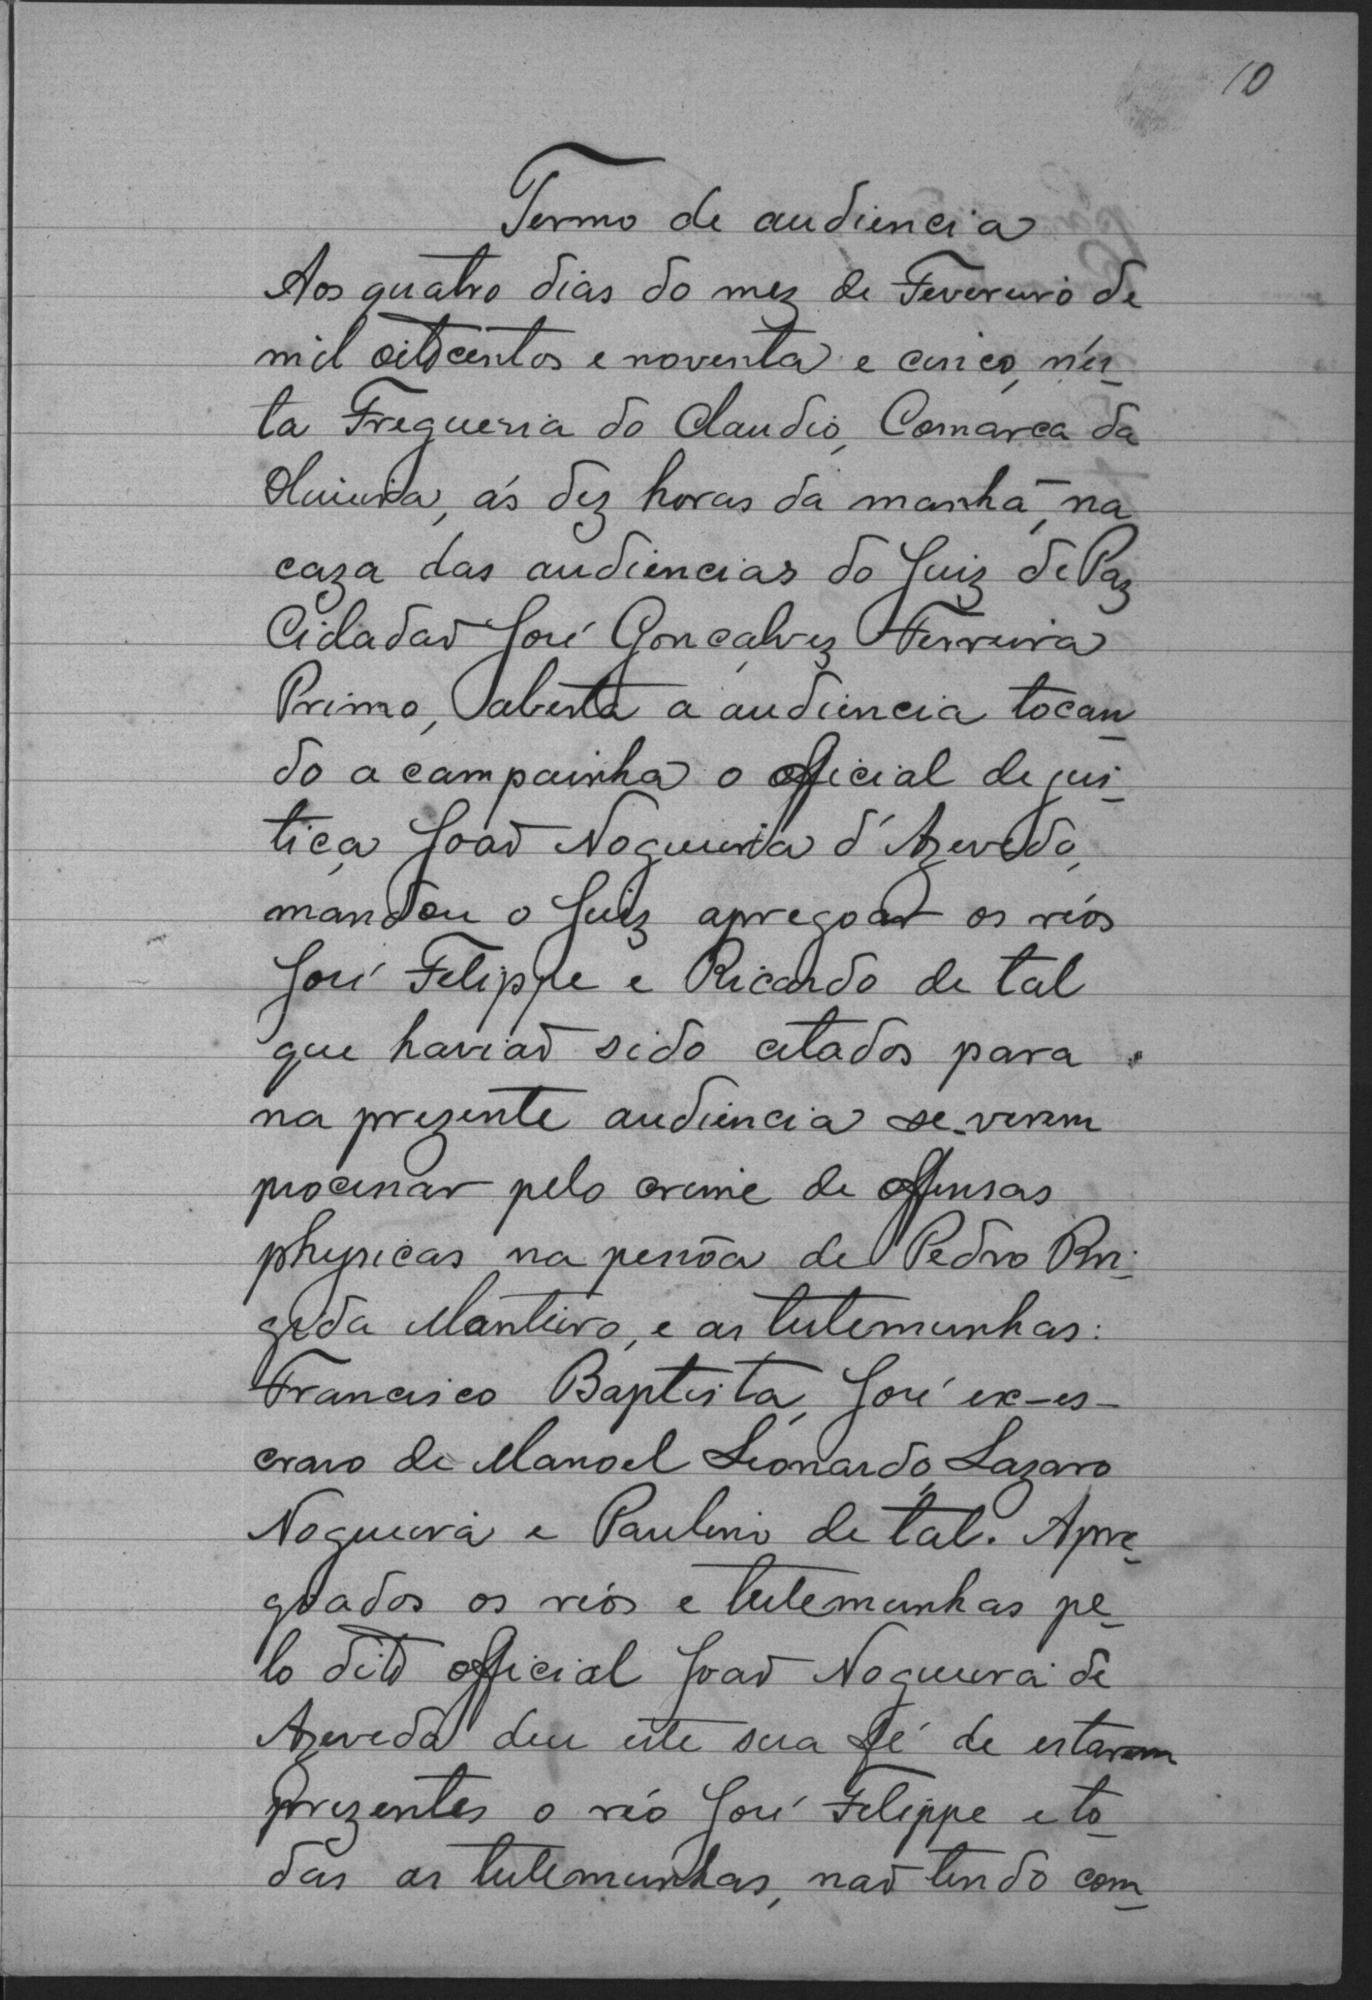 10
Termo de audiencia
Aos quatro dias do mez de Fevereiro de
mil oitocentos e noventa e cinco, n'es-
ta Freguesia do Claudio, Comarca da
Oliveira, ás dez horas da manhã, na
caza das audiencias do Juiz de Paz
Cidadaõ José Gonçalvez Ferreira
Primo, aberta a audiencia tocan-
do a campainha o official de jus-
tiça Joaõ Nogueira d'Azevedo,
mandou o Juiz apregoar os réos
José Felippe e Ricardo de tal
que haviaõ sido citados para
na prezente audiencia se verem
processar pelo crime de offensas
physicas na pessôa de Pedro Bri-
gida Monteiro, e as testemunhas:
Francisco Baptista, José ex-es-
cravo de Manoel Leonardo, Lazaro
Nogueira e Paulino de tal. Apre-
goados os réos e testemunhas pe-
lo dito official Joaõ Nogueira de
Azevedo deu este sua fé de estarem
prezentes o réo José Felippe e to-
das as testemunhas, naõ tendo com-